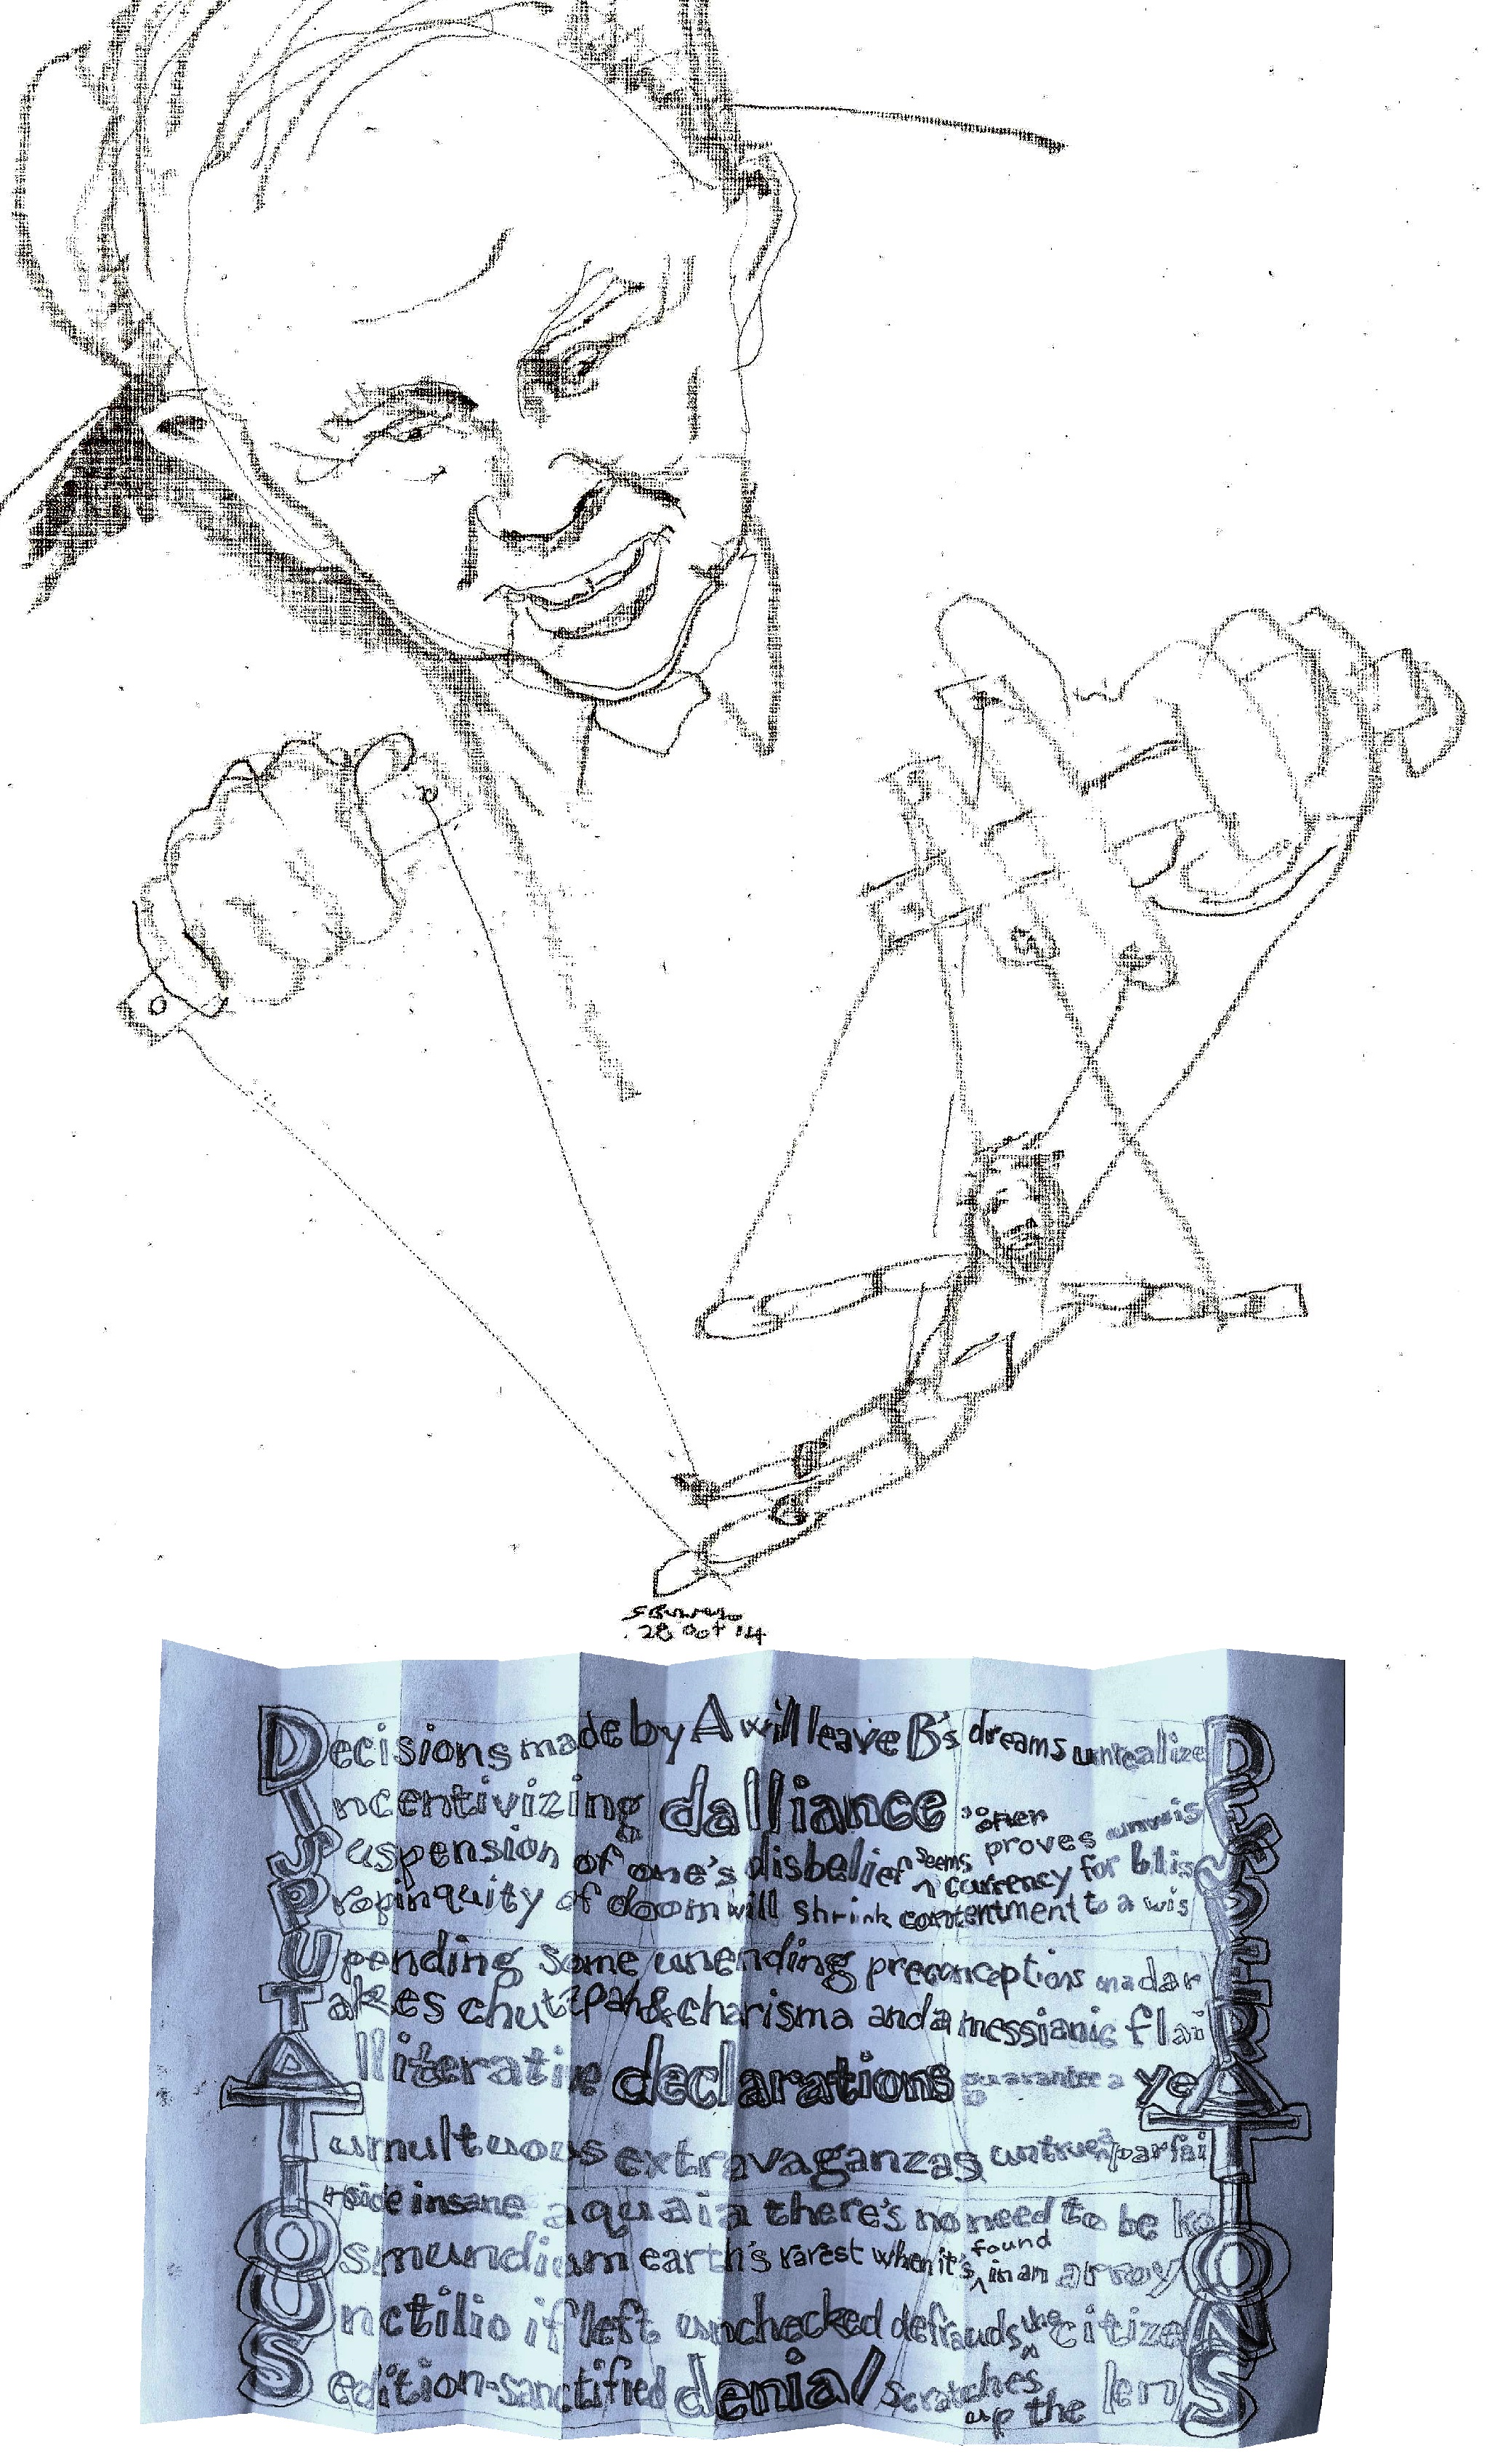 28 Oct 14
Decisions made by A will leave B's dreams unrealizeD
Incentivizing dalliance often proves unwisE
Suspension of one's disbelief seems currency for blisS
Propinquity of doom will shrink contentment to a wisP
Upending some unending preconceptions on a darE
Takes chutzpah & charisma and a messianic flaiR
Alliterative declarations guarantee a yeA
Tumultuous extravaganzas parfaiT
insane aquaia there's no need to be koI
Osmundium earth's rarest when it's found in an arroyO
Unctilio if left unchecked defrauds the citizeN
Sedition-sanctified denial scratches up the lenS